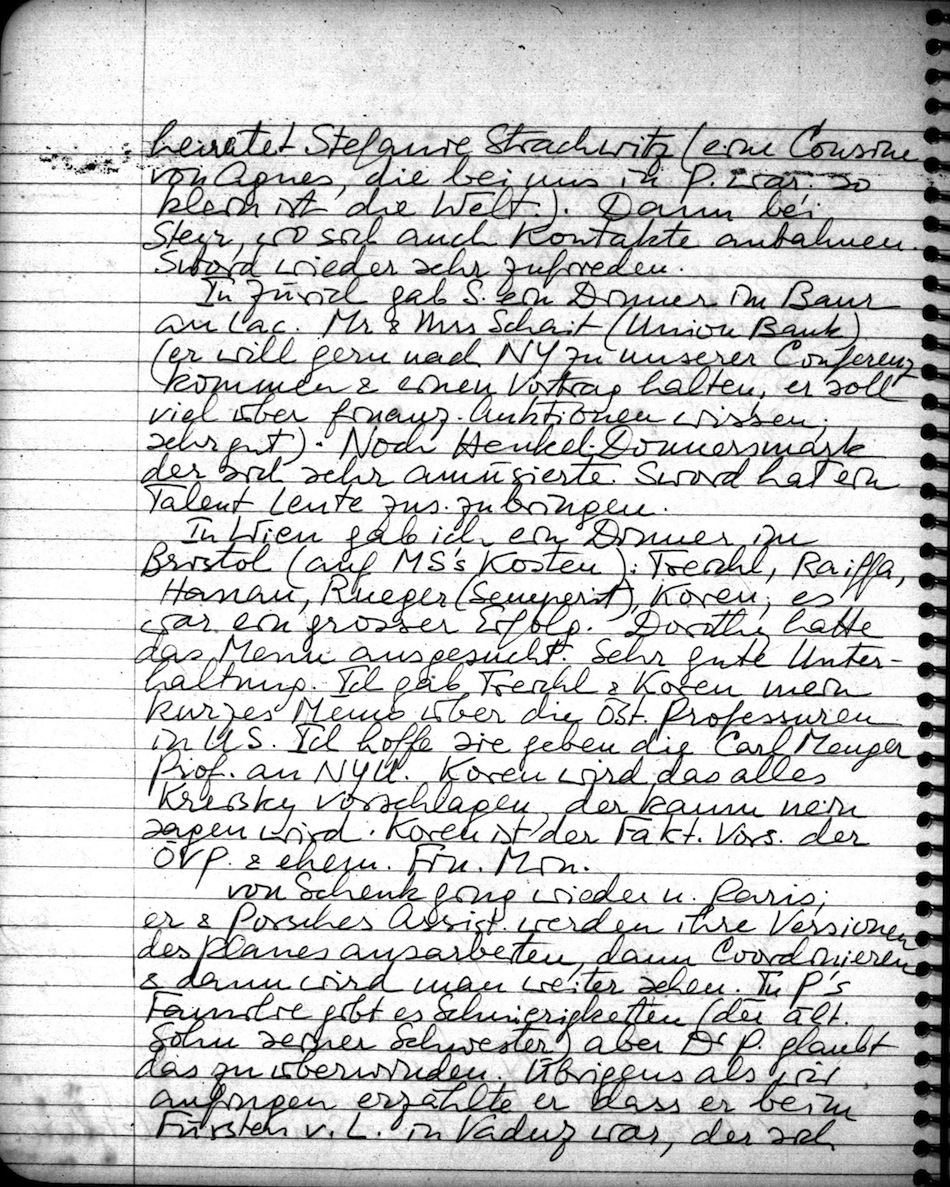 heiratet Stefanie Strachwitz (eine Cousine
von Agnes, die bei uns in P. war. so
klein ist die Welt.). Dann bei
Steyr, wo sich auch Kontakte anbahnen.
Sword wieder sehr zufrieden.
In Zürich gab S. ein Dinner im Baur
au Lac. Mr & Mrs Schait (Union Bank)
(er will gern nach NY zu unserer Conferenz
kommen & einen Vortrag halten, er soll
viel über finanz. Auktionen wissen;
sehr gut). Noch Henkel-Donnersmark
der sich sehr amüsierte. Sword hat ein
Talent Leute zus. zu bringen.
In Wien gab ich ein Dinner im
Bristol (auf MS's Kosten): Treichl, Raiffa,
Hanau, Rueger (Semperit), Koren; es
war ein grosser Erfolg. Dorothy hatte
das Menu ausgesucht. Sehr gute Unter-
haltung. Ich gab Treichl & Koren mein
kurzes Memo über die Öst. Professuren
in US. Ich hoffe sie geben die Carl Menger
Prof. an NYU. Koren wird das alles
Kreisky vorschlagen, der kaum nein
sagen wird. Koren ist der Fakt. Vors. der
ÖVP. & ehem. Fin. Min.
von Schenk ging wieder n. Paris;
er & Porsches Assist. werden ihre Versionen
des Planes ausarbeiten, dann Coordinieren
& dann wird man weiter sehen. In P's
Familie gibt es Schwierigkeiten (der ält.
Sohn seiner Schwester) aber Dr P. glaubt
das zu überwinden. Übrigens als wir
anfingen erzählte er dass er beim
Fürsten v. L. in Vaduz war, der sich